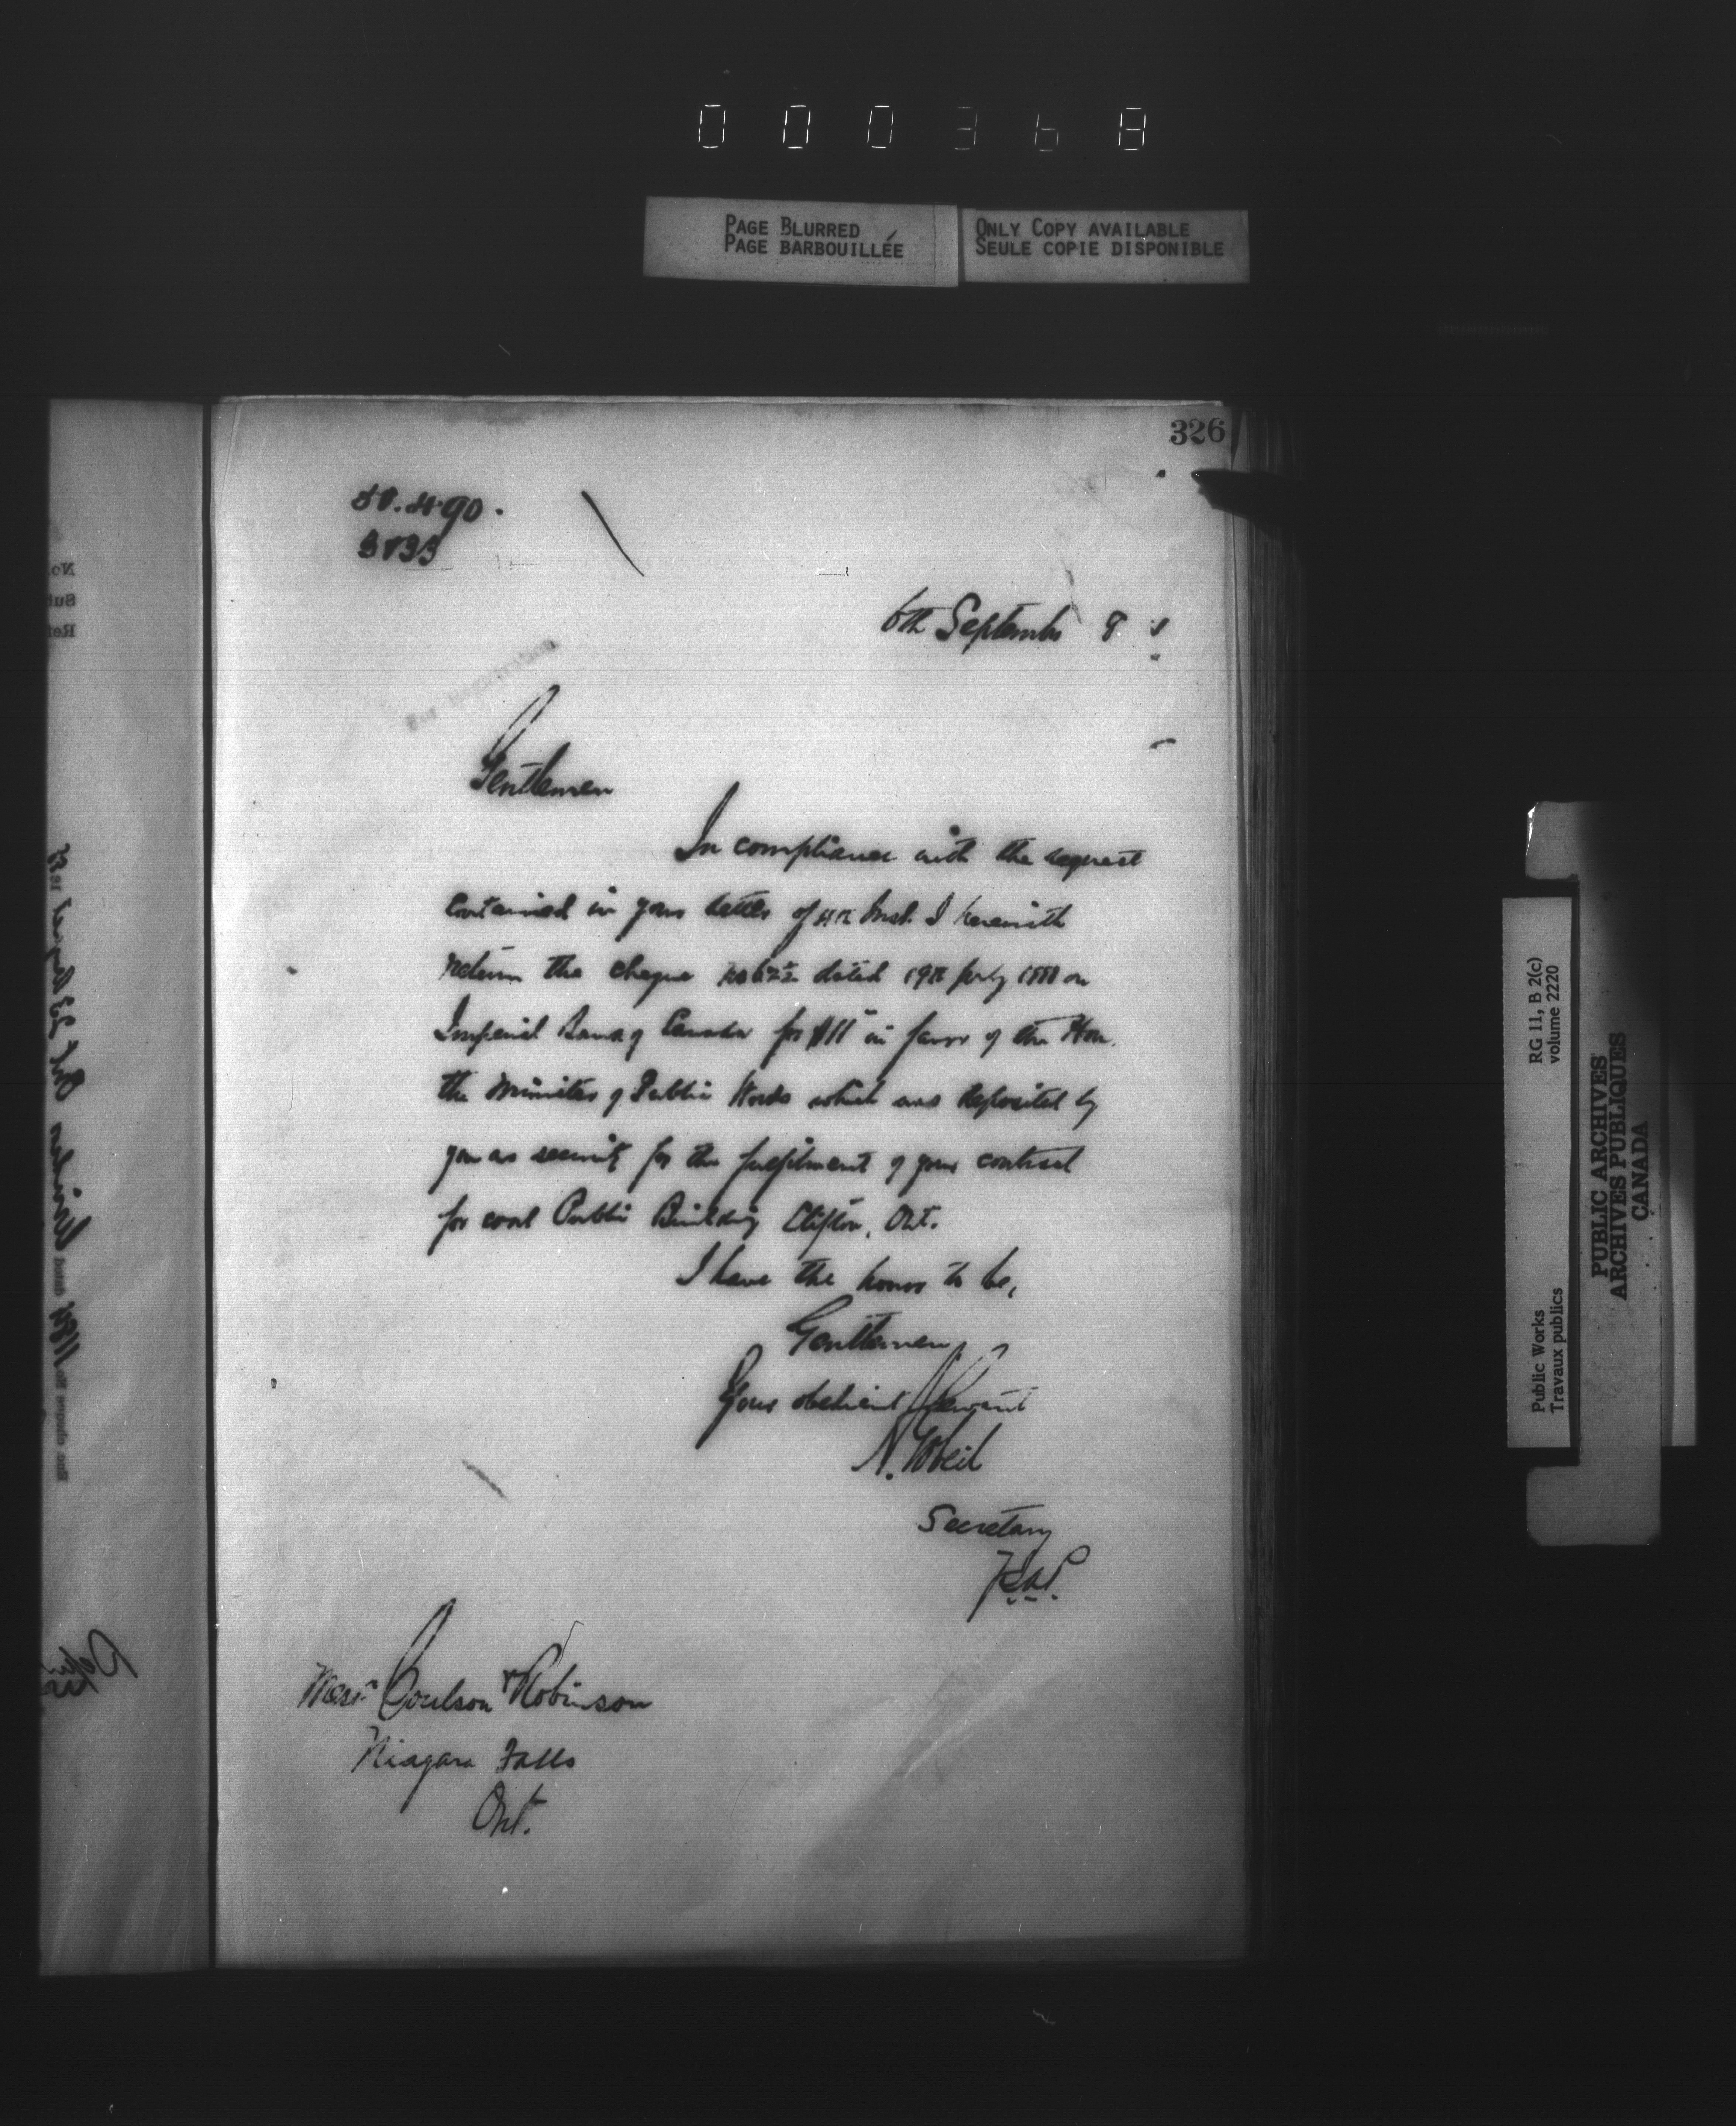 000368
PAGE BLURRED
PAGE BARBOUILLÉE
ONLY COPY AVAILABLE
SEULE COPIE DISPONIBLE
326
90.
6th September 8
Gentlemen
In compliance with the request
contained in your letter of 4th Inst. I herewith
return the cheque dated 19th July 1888 on
Imperial Bank of Canada for $11 in favor of the Hon.
the Minister of Public Works which was deposited by
you as security for the fulfilment of your contract
for coal Public Building Clifton, Ont.
I have the honor to be,
Gentlemen
Your obedient Servant
N. Gobeil
Secretary
Messrs Coulson & Robinson
Niagara Falls
Ont.
RG 11, B 2(c)
volume 2220
Public Works
Travaux publics
PUBLIC ARCHIVES
ARCHIVES PUBLIQUES
CANADA